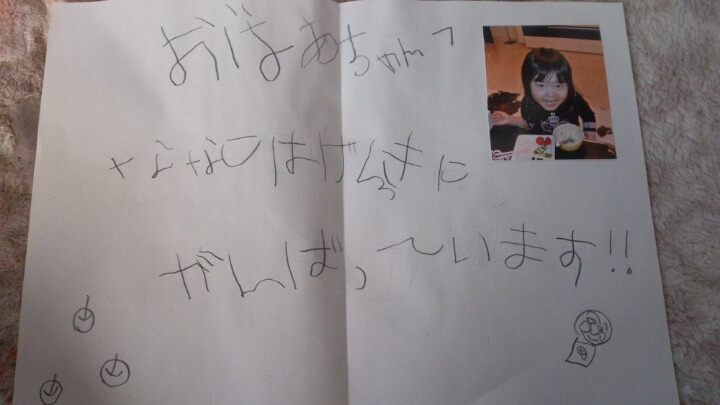 おばあちゃんへ
ななこはげんきに
がんばっています!!